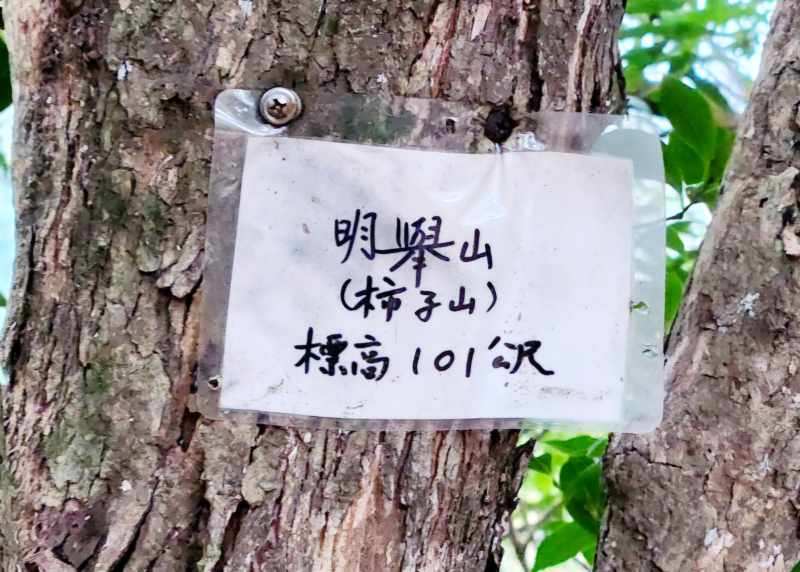 明舉山
(柿子山)
標高101公尺